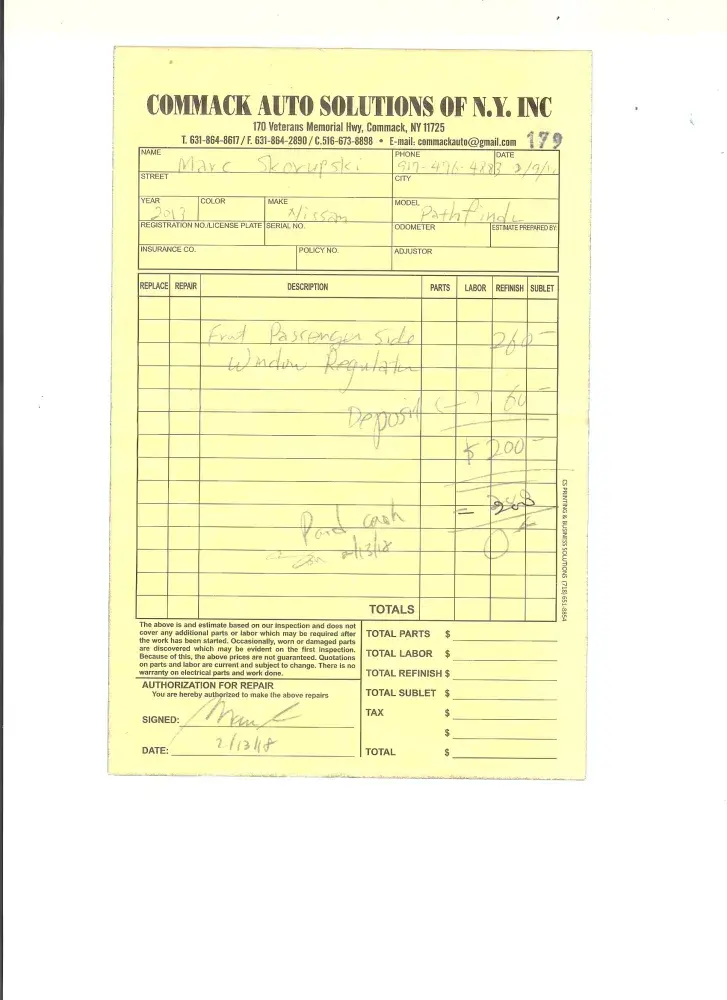 COMMACK AUTO SOLUTIONS OF N.Y. INC
170 Veterans Memorial Hwy, Commack, NY 11725
T. 631-864-8617 / F. 631-864-2890 / C.516-673-8898 • E-mail: commackauto@gmail.com 179
NAME PHONE DATE
Marc Skorupski 917-476-4783
STREET CITY
YEAR COLOR MAKE MODEL
2013 Nissan Pathfinder
REGISTRATION NO./LICENSE PLATE SERIAL NO. ODOMETER ESTIMATE PREPARED BY:
INSURANCE CO. POLICY NO. ADJUSTOR
REPLACE REPAIR DESCRIPTION PARTS LABOR REFINISH SUBLET
Front Passenger Side 260-
Window Regulator
Deposit (-) 60-
$ 200-
= 200
Paid cash 0
on 2/13/18
CS PRINTING & BUSINESS SOLUTIONS (718)-651-8854
TOTALS
The above is and estimate based on our inspection and does not
cover any additional parts or labor which may be required after
the work has been started. Occasionally, worn or damaged parts
are discovered which may be evident on the first inspection.
Because of this, the above prices are not guaranteed. Quotations
on parts and labor are current and subject to change. There is no
warranty on electrical parts and work done.
TOTAL PARTS $
TOTAL LABOR $
TOTAL REFINISH $
AUTHORIZATION FOR REPAIR
You are hereby authorized to make the above repairs
TOTAL SUBLET $
SIGNED:
TAX $
$
DATE: 2/13/18
TOTAL $